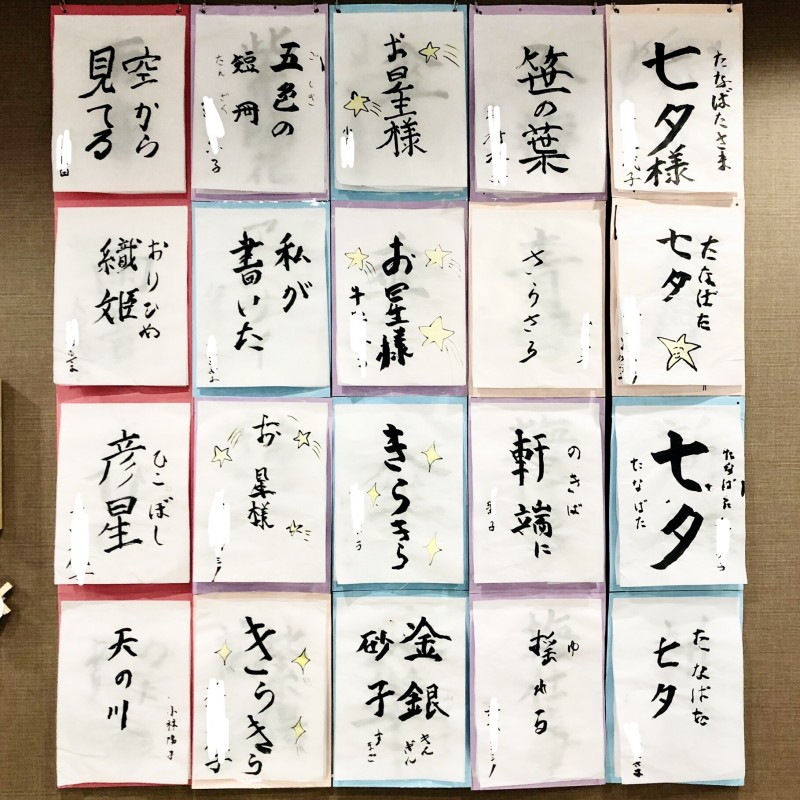 たなばたさま
七夕様
たなばた
七夕
たなばた
七夕
たなばた
たなばた
七夕
笹の葉
さらさら
のきば
軒端に
ゆ
揺れる
お星様
お星様
きらきら
金銀
きんぎん
砂子
すなご
ごしき
五色の
短冊
たんざく
私が
書いた
お星様
きらきら
空から
見てる
おりひめ
織姫
ひこぼし
彦星
天の川
小林陽子